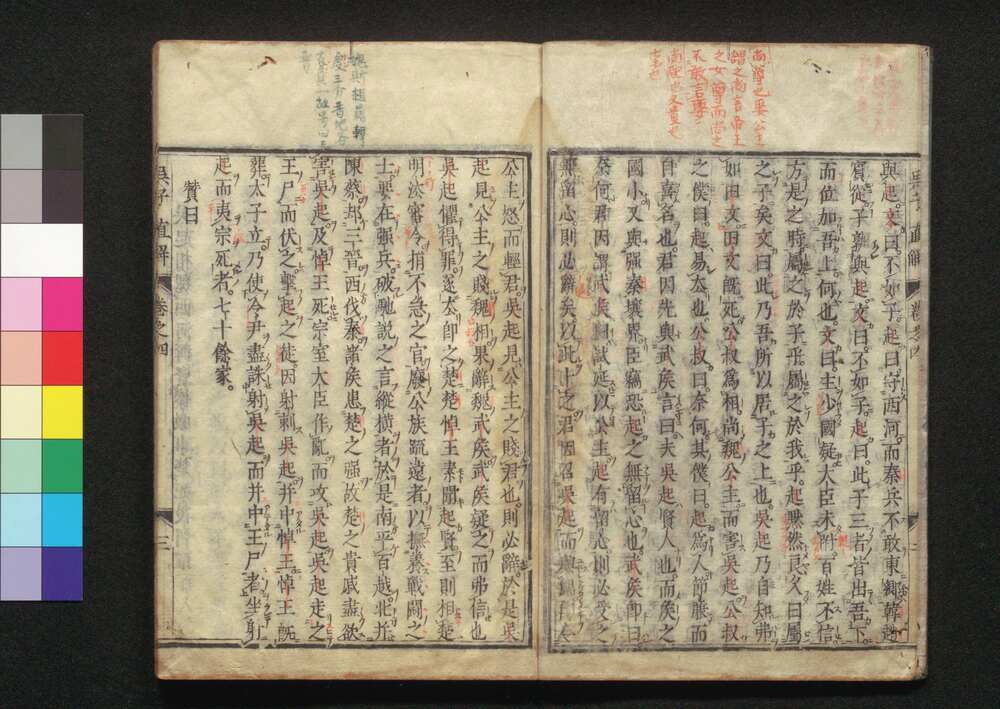 與起。文曰不如子。起曰守西河而秦兵不敢東鄉韓趙
賓從子孰與起。文曰不如子。起曰此子三者皆出吾下
而位加吾上何也。文曰主少國疑大臣未附百姓不信
方是之時屬之於子乎。屬之於我乎。起默然良久曰屬
之子矣文曰此乃吾所以居子之上也。吳起乃自知弗
如田文田文既死公叔爲相尚魏公主而害吳起公叔
之僕曰。起易去也公叔曰奈何其僕曰。起爲人節廉而
自喜名也君因先與武矦言曰夫吳起賢人也而矦之
國小又與强秦壤界臣竊恐起之無留心也武矦即曰
奈何君因謂武矦曰試延以公主起有留心則必受之
無留心則必辭矣以此卜之君因召吳起而與歸即令
公主怒而輕君吳起見公主之賤君也則必辭於是吳
起見公主之賤魏相果辭魏武矦武矦疑之而弗信也
吳起懼得罪遂去即之楚楚悼王素聞起賢至則相楚
明法審令捐不急之官廢公族疏遠者以撫養戰鬪之
士要在强兵破馳說之言縱橫者於是南平百越北并
陳蔡却三晉西伐秦諸矦患楚之强故楚之貴戚盡欲
害吳起及悼王死宗室大臣作亂而攻吳起吳起走之
王尸而伏之擊起之徒因射刺吳起并中悼王悼王既
葬太子立乃使令尹盡誅射吳起而并中王尸者坐射
起而夷宗死者七十餘家。
贊曰
吳子直解 卷之四 三